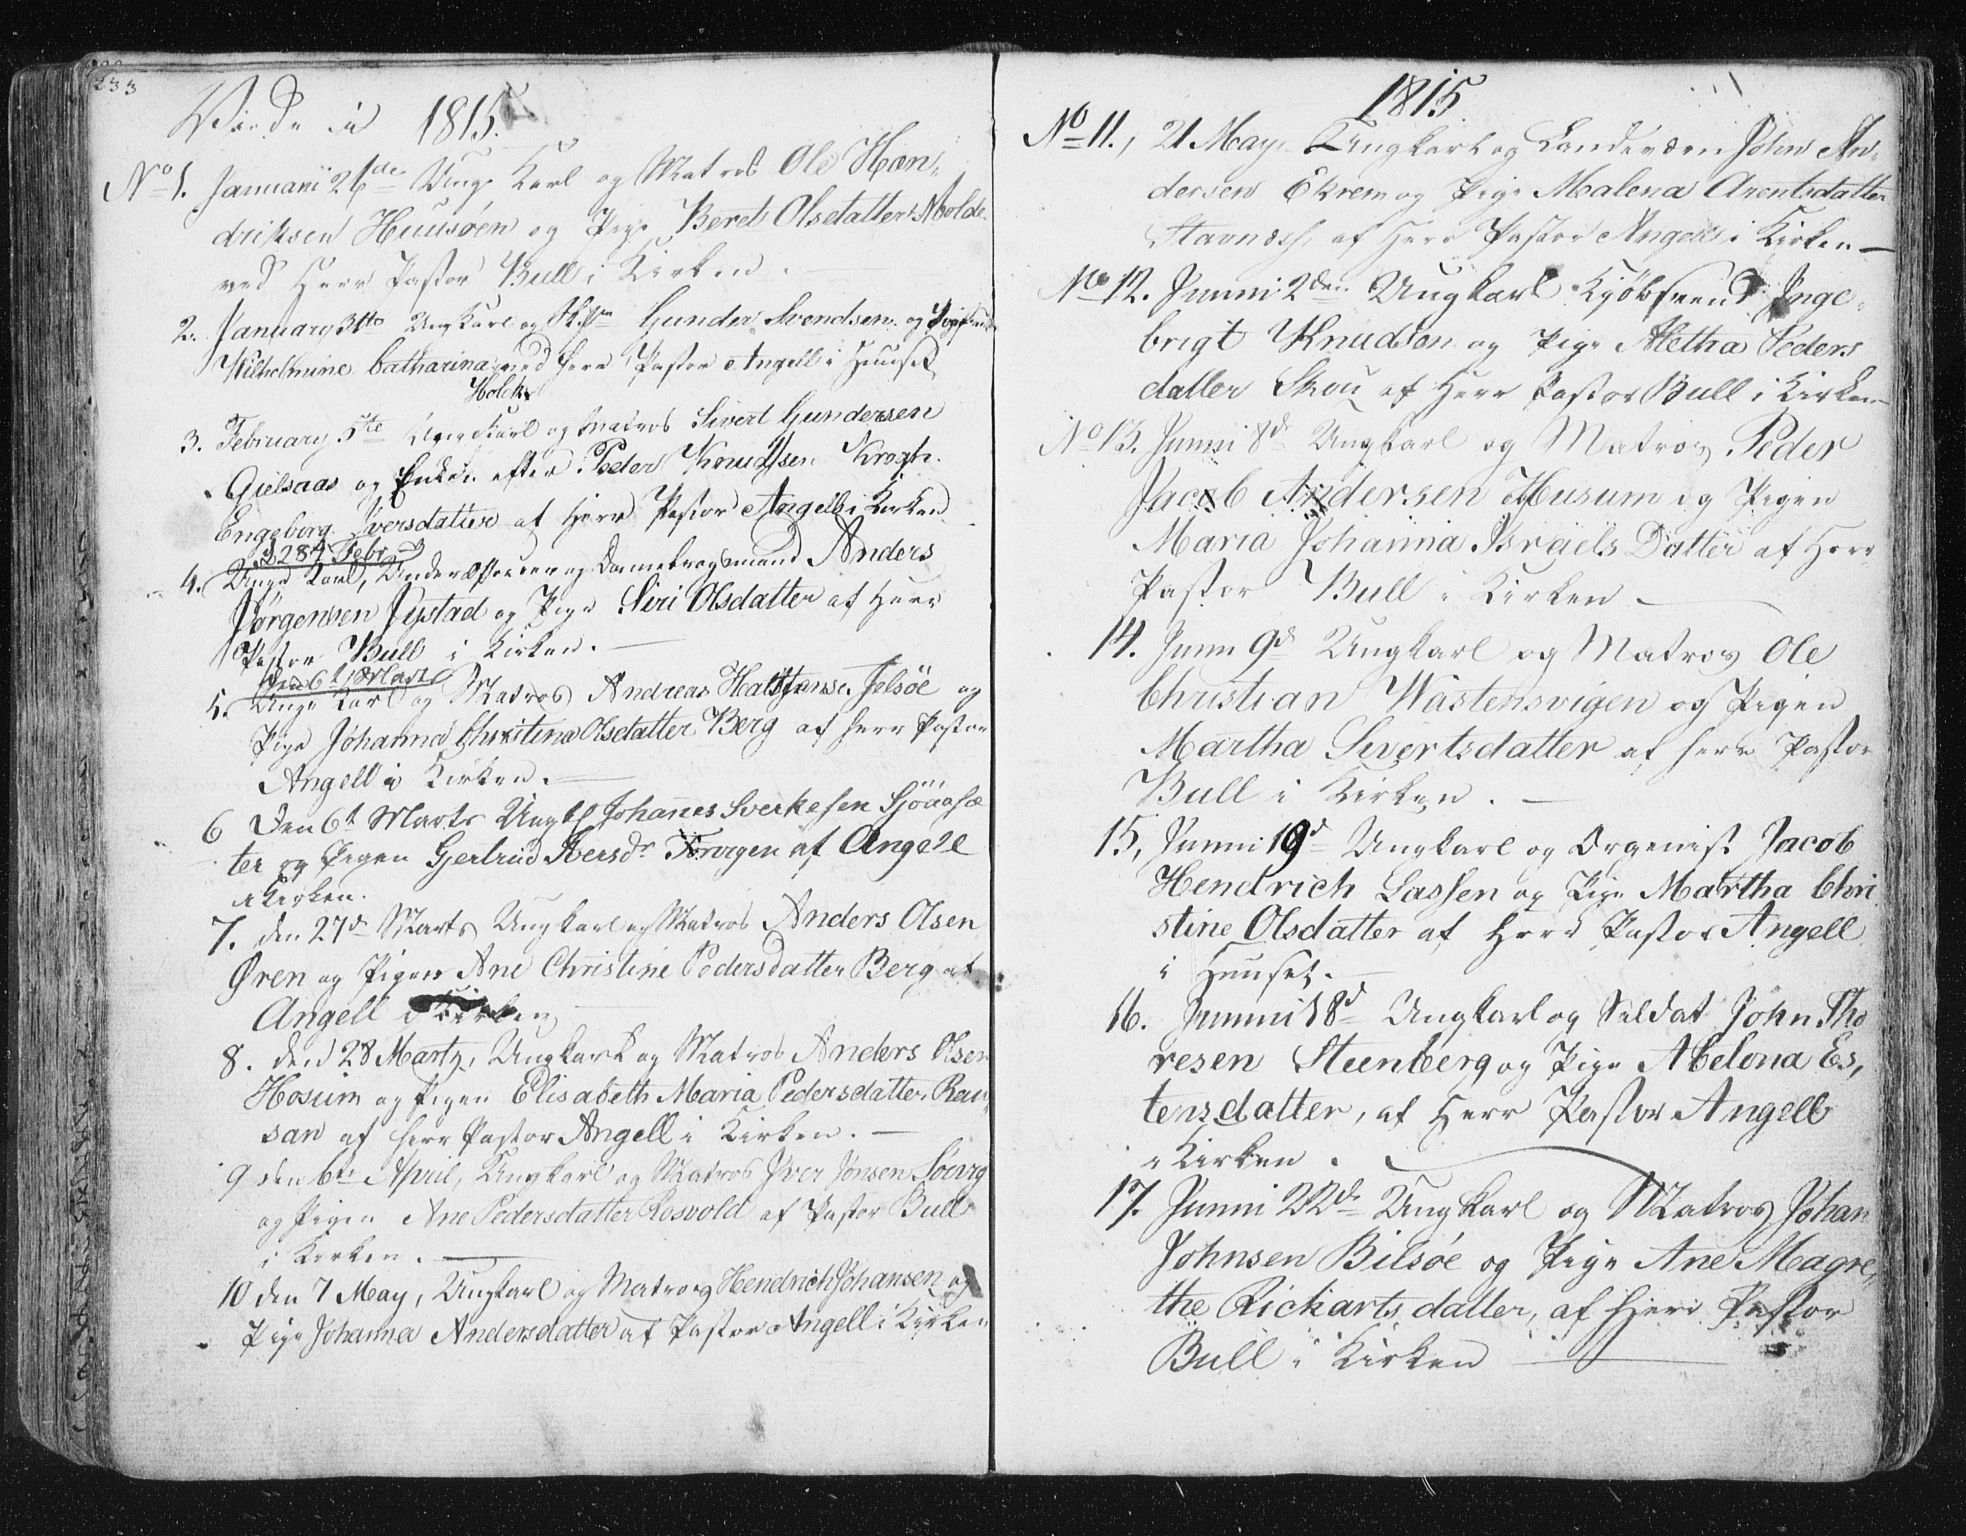 233
Viede in 1815.
No 1. Januarii 26de Unge Karl og Matros Ole Hen,
driksen Huusøen og Pige Beret Olsdatter Molde
ved Herr Pastor Bull i Kirken.
2. January 31te Ungkarl og Gunder Svendsen og
Wilhelmine Catharina ved Herr Pastor Angell i Huuset
Holck
3. February 5te Ungkarl og Matros Sivert Gundersen
Gielsaas og Enken efter Peder Knudtsen Krogh.
Engeborg Iversdatter af Herr Pastor Angell i Kirken
d 28d Febr
4. Unge Karl, og Dannebrogsmand Anders
Jørgensen og Pige Siri Olsdatter af Herr
Pastor Bull i Kirken.
Den 6t Marts
5. Unge Karl og Matros Andreas Jelsöe og
Pige Johanna Christina Olsdatter Berg af Herr Pastor
Angell i Kirken.
6 Den 6t Marts Ungkl Johanes Sverkesen Sjöaasæ
ter og Pigen Gjertrud Aersdr af Angell
i Kirken.
7. den 27d Marts Ungkarl og Matros Anders Olsen
Øren og Pigen Ane Christine Pedersdatter Berg af
Angell i Kirken
8. den 28 Marty, Ungkarl og Matros Anders Olsen
Hosum og Pigen Elisabeth Maria Pedersdatter Ran,
san af Herr Pastor Angell i Kirken.
9 den 6te April, Ungkarl og Matros Iver Jonsen
og Pigen Ane Pedersdatter Rosvold af Pastor Bull
i Kirken.
10 den 7 May, Ungkarl og Matros Hendrich Johansen og
Pige Johanna Andersdatter af Pastor Angell i Kirken
1815
No 11., 21 May Ungkarl og Landeværn John An,
dersen Ekrem og Pige Malena Arentsdatter
Stavnæss, af Herr Pastor Angell i Kirken
No 12. Junni 2den Ungkarl Kjöbmend Inge,
brigt Knudson og Pige Aletha Peders
datter Skou af Herr Pastor Bull i Kirken
No 13. Junni 8de Ungkarl og Matros Peder
Jacob Andersen Husum og Pigen
Maria Johanna Israels Datter af Herr
Pastor Bull i Kirken
14. Junni 9d Ungkarl og Matros Ole
Christian Wastensvigen og Pigen
Martha Sivertsdatter af Herr Pastor
Bull i Kirken.
15, Junni 19d Ungkarl og Organist Jacob
Hendrich Lassen og Pige Martha Chri
stine Olsdatter af Herr Pastor Angell
i Huuset.
16. Junnii 18d Ungkarl og Soldat John Tho
resen Steenberg og Pige Abelona Es,
tensdatter, af Herr Pastor Angell
i Kirken.
17. Junni 22de Ungkarl og Matros Johan
Johnsen Bilsöe og Pige Ane Magre,
the Rickartsdatter, af Herr Pastor
Bull i Kirken